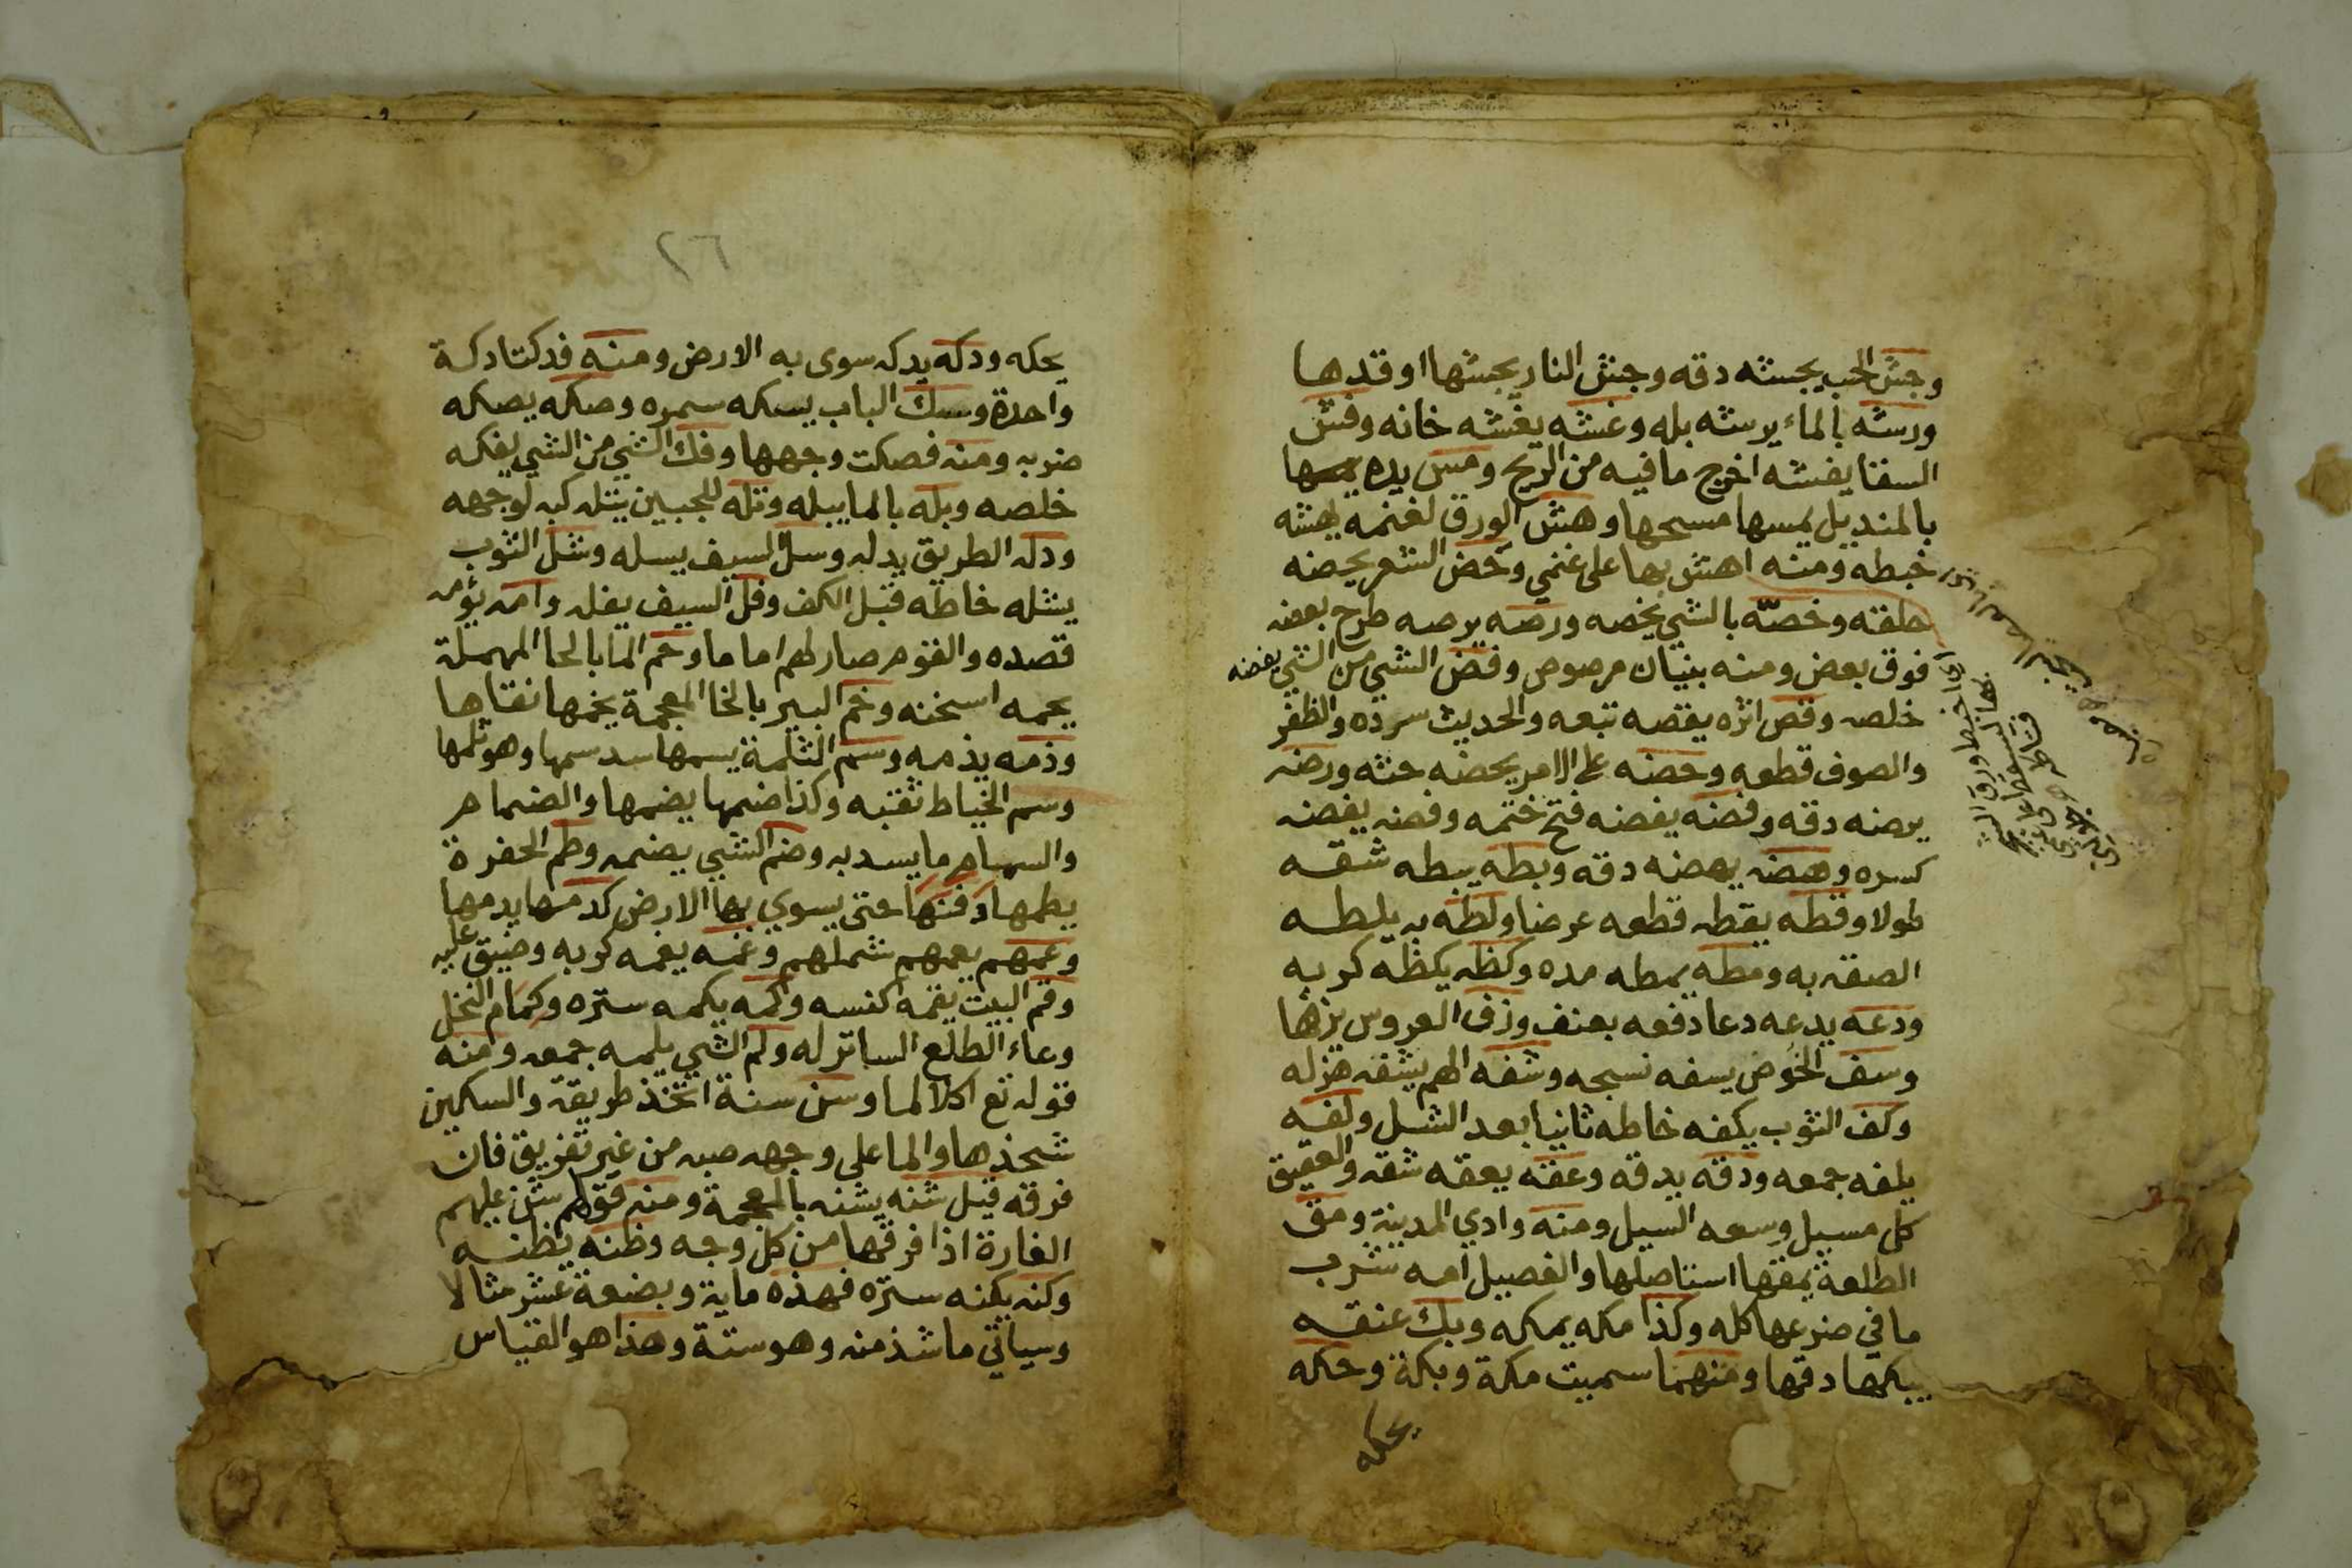 وجش الحب يجشه دقه وجش النار يجشها اوقدها
ورشه بالماء يرشه بله وغشه يغشه خانه وفش
السقا يفشه اخرج ما فيه من الريح ومس يده يمسها
بالمنديل يمسها مسحها وهش الورق لغنمه يهشه
خبطه ومنه اهش بها على غنمي وحض الشعر يحضه
حلقه وخصّه بالشي يخصه ورصه يرصه طرح بعضه
فوق بعض ومنه بنيان مرصوص وفض الشي من الشي يفضه
خلصه وقص اثره يقصه تبعه والحديث سرده والظفر
والصوف قطعه وحضه على الامر يحضه حثه ورضه
يرضه دقه وفضه يفضه فتح ختمه وفضه يفضه
كسره وهضه يهضه دقه وبطه يبطه شقه
طولا وقطه يقطه قطعه عرضا ولظه به يلظه
الصقه به ومطه يمطه مده وكظه يكظه كربه
ودعه يدعه دعا دفعه بعنف وزف العروس يزفها
وسف الخوص يسفه نسجه وشفه الهم يشفه هزله
وكف الثوب يكفه خاطه ثانيا بعد الشل ولفه
يلفه جمعه ودقه يدقه وعقه يعقه شقه والعقيق
كل مسيل وسعه السيل ومنه وادي المدينة ومق
الطلعة يمقها استاصلها والفصيل امه شرب
ما في ضرعها كله وكذا مكه يمكه وبك عنقه
يبكها دقها ومنهما سميت مكة وبكة وحكه
يحكه
اي اخبط ورق الشجر
٢٦
يحكه ودكه يدكه سوى به الارض ومنه فدكتا دكة
واحدة وسك الباب يسكه سمره وصكه يصكه
ضربه ومنه فصكت وجهها وفك الشي من الشي يفكه
خلصه وبله بالما يبله وتله للجبين يتله كبه لوجهه
ودله الطريق يدله وسل السيف يسله وشل الثوب
يشله خاطه قبل الكف وفل السيف يفله وامه يؤمه
قصده والقوم صار لهم اماما وحم الما بالحا المهملة
يحمه اسخنه وخم البير بالخا المعجمة يخمها نقاها
وذمه يذمه وسم الثلمة يسمها سد سمها وهو ثلمها
وسم الخياط ثقبه وكذا ضمها يضمها والضمام
والسمام ما يسد به وضم الشي يضمه وطم الحفرة
يطمها دفنها حتى يسوي بها الارض كدمها يدمها
وعمهم يعمهم شملهم وغمه يغمه كربه وضيق عليه
وقم البيت يقمه كنسه وكمه يكمه ستره وكمام النخل
وعاء الطلع الساتر له ولم الشي يلمه جمعه ومنه
قوله تع اكلا لما وسن سنة اتخذ طريقة والسكين
شحذها والما على وجهه صبه من غير تفريق فان
فرقه قيل شنه يشنه بالمعجمة ومنه قولهم شن عليهم
الغارة اذا فرقها من كل وجه وظنه يظنه
وكنه يكنه ستره فهذه ماية وبضعة عشر مثالا
وسياتي ما شذ منه وهو ستة وهذا هو القياس